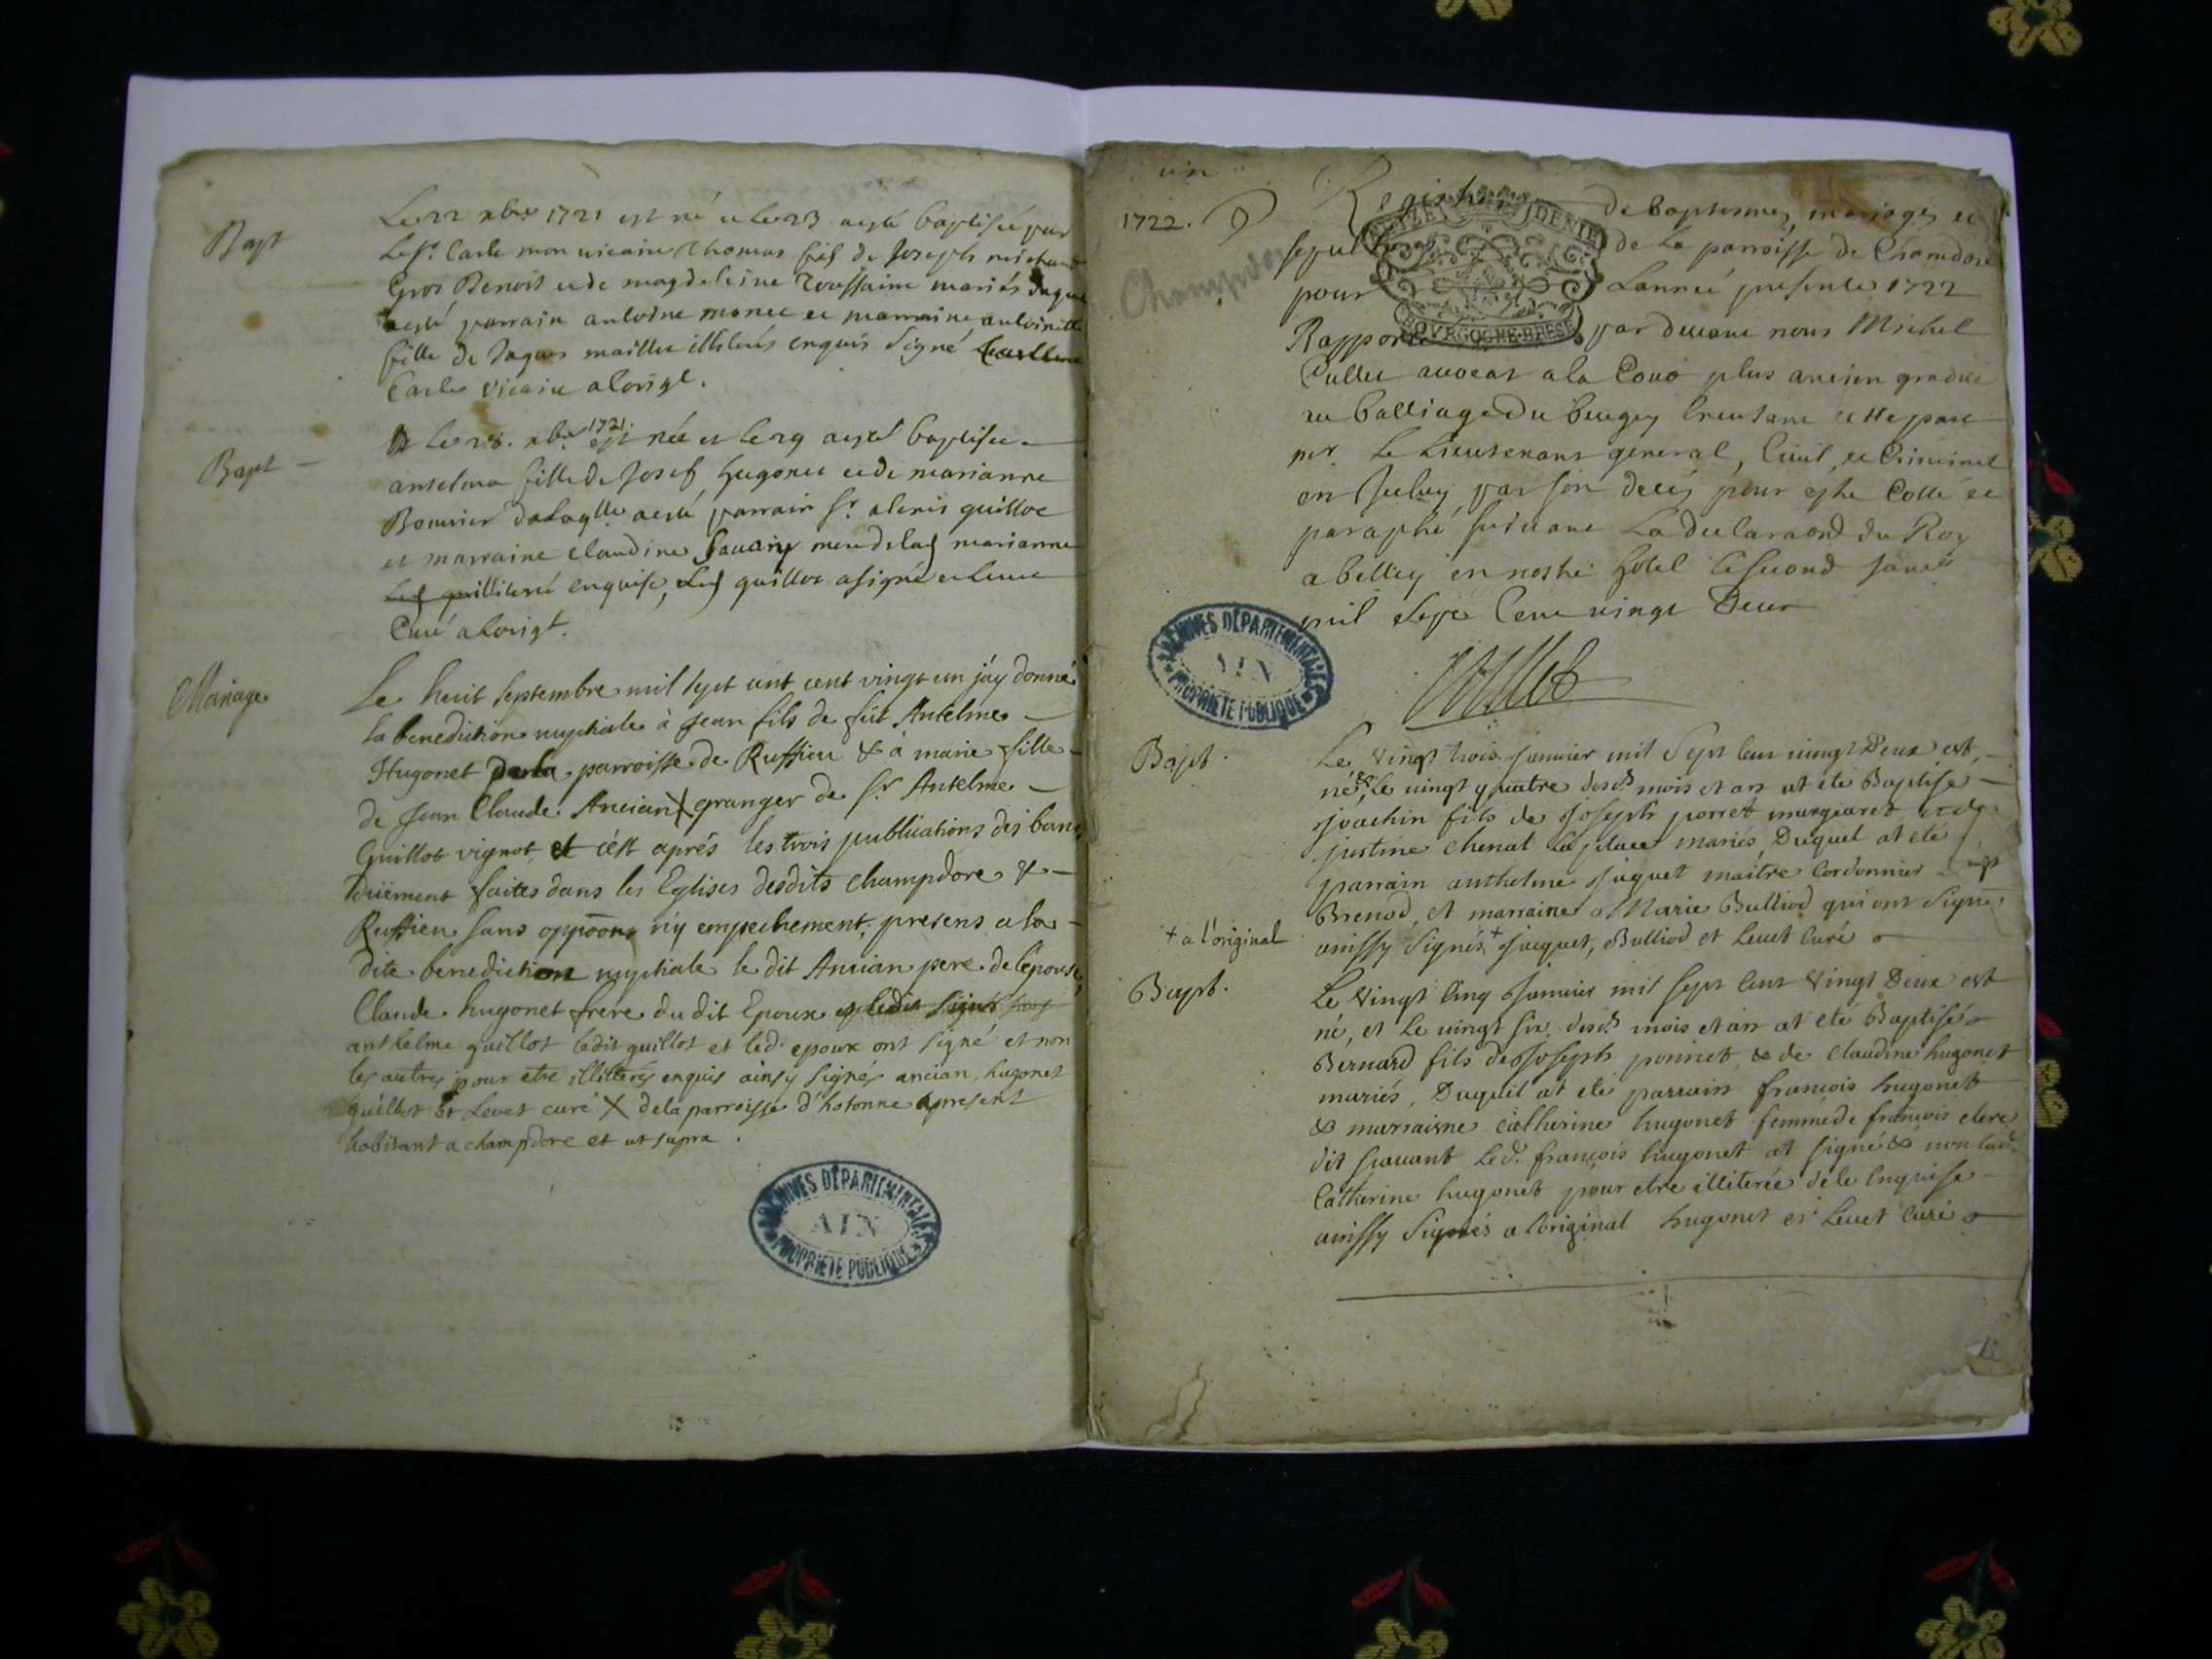 Bapt
Le 22 xbre 1721 est né et le 23 a esté baptisé par
le Sr. Carle mon vicaire Thomas fils de Joseph michaud
Gros Benoit et de magdeleine Toussaint mariés duquel
a esté parrain antoine monet et marraine antoinette
fille de Jaques maillet illiterés enquis signé
Carle vicaire a lorigl.
Bapt
le 28. xbre 1721. est née et le 29 a esté baptisée
anselma fille de Josef hugonet et de marianne
Bouvier de laqlle a esté parrain sr. alexis guillot
et marraine claudine savarin mere de lad marianne
illiteré enquise, led guillot a signé et Levet
Curé a lorigl.
Mariage
Le huit septembre mil sept cent cent vingt un j'ay donné
la benediction nuptiale à Jean fils de fût Antelme
Hugonet de la parroisse de Ruffieu & à marie fille
de Jean Claude Ancian X granger de sr. Antelme
Guillot vignot, et c'ést aprés les trois publications des bans
düement faites dans les Eglises desdits champdore &
Ruffieu sans oppoon ny empechement, presens a la
dite benediction nuptiale le dit Ancian pere de lepouse,
Claude hugonet frere du dit Epoux
anthelme guillot ledit guillot et led. epoux ont signé et non
les autres pour etre illiterés enquis ainsy signés ancian, hugonet
guillot et Levet curé X de la parroisse d'hotonne a present
habitant a champdore et ut supra.
ARCHIVES DÉPARTEMENTALES
AIN
PROPRIÉTÉ PUBLIQUE
un
1722.
Champdor
Registre de baptemes, mariages et
sepultures de la parroisse de Champdore
pour Lannée presente 1722
Rapporté par devant nous Michel
Cullet avocat a la Cour plus ancien gradué
au balliage du bugey
pr. le Lieutenant general, Civil, et Criminel
par son decés pour estre Cotté et
paraphé suivant La declaraon du Roy
a belley en nostre hotel le second janer
mil sept cent vingt deux
BOVRGOGNE-BRESSE
Cullet
ARCHIVES DÉPARTEMENTALES
AIN
PROPRIÉTÉ PUBLIQUE
Bapt.
Le vingt trois janvier mil sept cent vingt Deux est
né, et le vingt quatre desd. mois et an at eté Baptisé
joachin fils de joseph porret et de
justine chenal la place mariés, Duquel at eté
parrain anthelme jaquet maitre Cordonnier
Brenod, et marraine Marie Bulliod qui ont signé,
+ a l'original
ainssy signés + jacquet, Bulliod et Levet Curé
Bapt.
Le vingt cinq janvier mil sept cent vingt Deux est
né, et le vingt six desd. mois et an at eté Baptisé
Bernard fils de joseph ponnet & de claudine hugonet
mariés, Duquel at eté parrain francois hugonet
& marraine catherine hugonet femme de francois clere
dit savant led. françois hugonet at signé & non lad.
Catherine hugonet pour etre illiterée de le Enquise
ainssy signés a l'original hugonet et Levet Curé